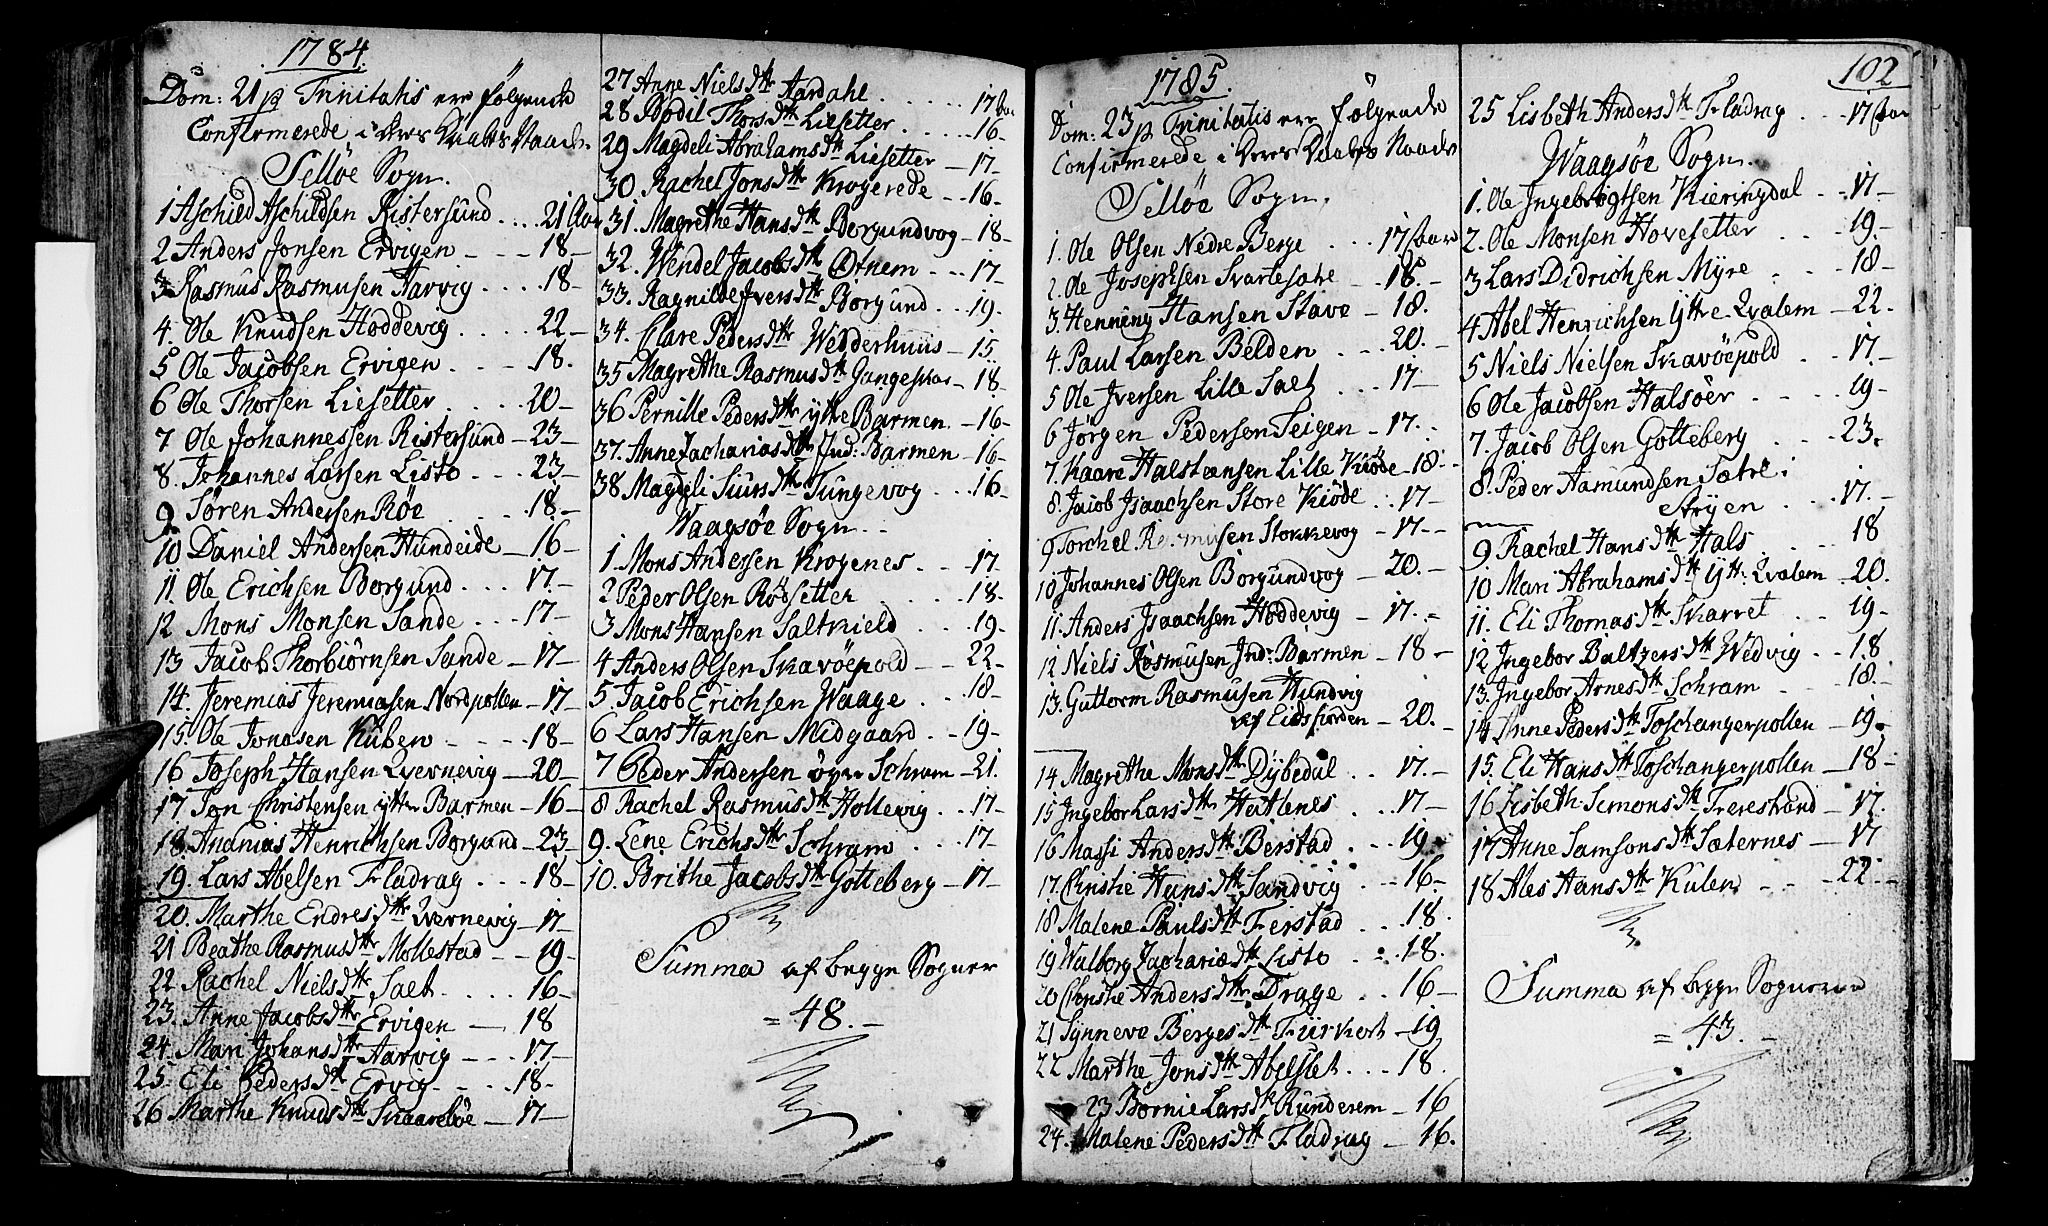 1784.
Dom: 21 p Trinitatis ere følgende
Confirmerede i deres Daabes Naade.
Selløe Sogn.
1 Aschild Aschildsen Ristersund . . . 21 Aar
2 Anders Jonsen Ervigen - - - 18 -
3 Rasmus Rasmusen Aarvig . . . . 18 -
4. Ole Knudsen Hoddevig . . . . 22 -
5 Ole Jacobsen Ervigen . . . 18.
6 Ole Thorsen Liesetter . . . . 20 -
7 Ole Johannessen Ristersund - 23 -
8. Johannes Larsen Listo . . . 23 -
9 Søren Andersen Røe . . . 18. -
10 Daniel Andersen Hundeide - 16 -
11 Ole Erichsen Borgund . . . 17. -
12 Mons Monsen Sande . . . 17 -
13 Jacob Thorbiørnsen Sande - 17 -
14. Jeremias Jeremiasen Nordpollen - 17
15. Ole Jonasen Kuben - - - - 18 -
16 Joseph Hansen Qvernevig - 20 -
17. Jon Christensen ytter Barmen - 16 -
18. Ananias Henrichsen Borgund - 23 -
19. Lars Abelsen Fladrag . . . 18 -
20. Marthe Endresdtr Qvernevig - 17 -
21 Beathe Rasmusdtr Mollestad - - 19 -
22 Rachel Nielsdtr Salt . . . . 16 -
23. Anne Jacobsdtr Ervigen - - 18
24. Mari Johansdtr Aarvig - . . 17 -
25. Eli Pedersdtr Ervig . . . . 18 -
26 Marthe Knudsdtr Skaareløe - 17 -
27 Anne Nielsdtr Aardahl . . . . . . 17 Aar
28 Bodil Thorsdtr Liesetter . . . . 16 -
29 Magdeli Abrahamsdtr Liesetter - 17 -
30 Rachel Jonsdtr Krogerede . . . 16 -
31. Magrethe Hansdtr Borgundvog - 18 -
32. Wendel Jacobsdtr Otnem . . . 17 -
33. Ragnilde Iversdtr Borgund . . . 19 -
34. Clare Pedersdtr Wedderhuus - 15.
35 Magrethe Rasmusdtr Gangeskar - 18 -
36 Pernille Pedersdtr ytte Barmen . - 16 -
37. Anne Zachariasdtr Ind: Barmen - 16 -
38 Magdeli Siursdtr Tungevog . . . 16 -
Vaagsøe Sogn . . -
1. Mons Andersen Krogenes . . . 17. -
2 Peder Olsen Rødsetter . . . . . 18. -
3 Mons Hansen Saltkield . . . 19 -
4 Anders Olsen Skavøepold - - 22 -
5 Jacob Erichsen Waage . . . 18 -
6 Lars Hansen Midgaard . . - 19 -
7 Peder Andersen øvre Schram - 21.
8 Rachel Rasmusdtr Hollevig . . . 17 -
9. Lene Erichsdtr Schram . . . 17 -
10. Brithe Jacobsdtr Gotteberg - 17 -
Summa af begge Sogner
= 48. -
1785.
Dom: 23 p Trinitatis ere følgende
Confirmerede i deres Daabes Naade
Selløe Sogn.
1. Ole Olsen Nedre Berge . . . 17 Aar
2. Ole Josephsen Svartesøtre - 18. -
3. Henning Hansen Stave - 18.
4. Paul Larsen Belden . . . 20. -
5 Ole Iversen Lille Salt . . . 17 -
6 Jørgen Pedersen Seigen - 17. -
7. Kaare Halsteensen Lille Kiøde - 18. -
8. Jacob Isaachsen Store Kiøde . . 17 -
9 Torchel Rasmusen Stokkevog - 17 - -
10 Johannes Olsen Borgundvog - 20. -
11. Anders Isaachsen Hoddevig - 17. -
12 Niels Rasmusen Ind: Barmen - 18 -
13. Guttorm Rasmusen Hundvig
af Eidsfiorden - 20. -
14. Magrethe Monsdtr Dybedal . . 17. -
15 Ingebor Larsdtr Hatlenes . . 17 -
16 Massi Andersdtr Berstad . . . 19. -
17. Christie Hansdtr Sandvig . . . 16 -
18 Malene Paulsdtr Ferstad . . . 18.
19 Walborg Zachariædtr Listo . . . 18.
20 Christie Andersdtr Drage . . 16 -
21 Synneve Bergesdtr Fürkert - 19
22 Marthe Jonsdtr Abelset . . . 18.
23 Bornie Larsdtr Runderem - 16
24. Malene Pedersdtr Fladrag - 16.
102
25 Lisbeth Andersdtr Fladrag . . . 17 Aar
Waagsøe Sogn.
1. Ole Ingebrigtsen Kieringdal . . 17 -
2. Ole Monsen Hovesetter . . . 19. -
3 Lars Didrichsen Myre . . . 18 -
4 Abel Henrichsen Yttre Qvalem - 22.
5 Niels Nielsen Skavøepold . . 17. -
6 Ole Jacobsen Halsøer . . . . 19 -
7. Jacob Olsen Gotteberg . . . 23.
8. Peder Aamundsen Sætre i
Stryen . . . 17. -
9 Rachel Hansdtr Hals . . . . 18
10 Mari Abrahamsdtr Ytt: Qvalem - 20.
11. Eli Thomasdtr Skarret . . 19 -
12 Ingebor Baltzersdtr Wedvig . . 18
13. Ingebor Arnesdtr Schram . . . 18. -
14 Anne Pedersdtr Toschangerpollen - 19.
15. Eli Hansdtr Toschangerpollen - 18 -
16 Lisbeth Simonsdtr Trerestrand - 17.
17 Anne Samsonsdtr Sæternes - 17
18 Ales Hansdtr Kulen - - - 22 -
Summa af begge Sognerne
= 43. -